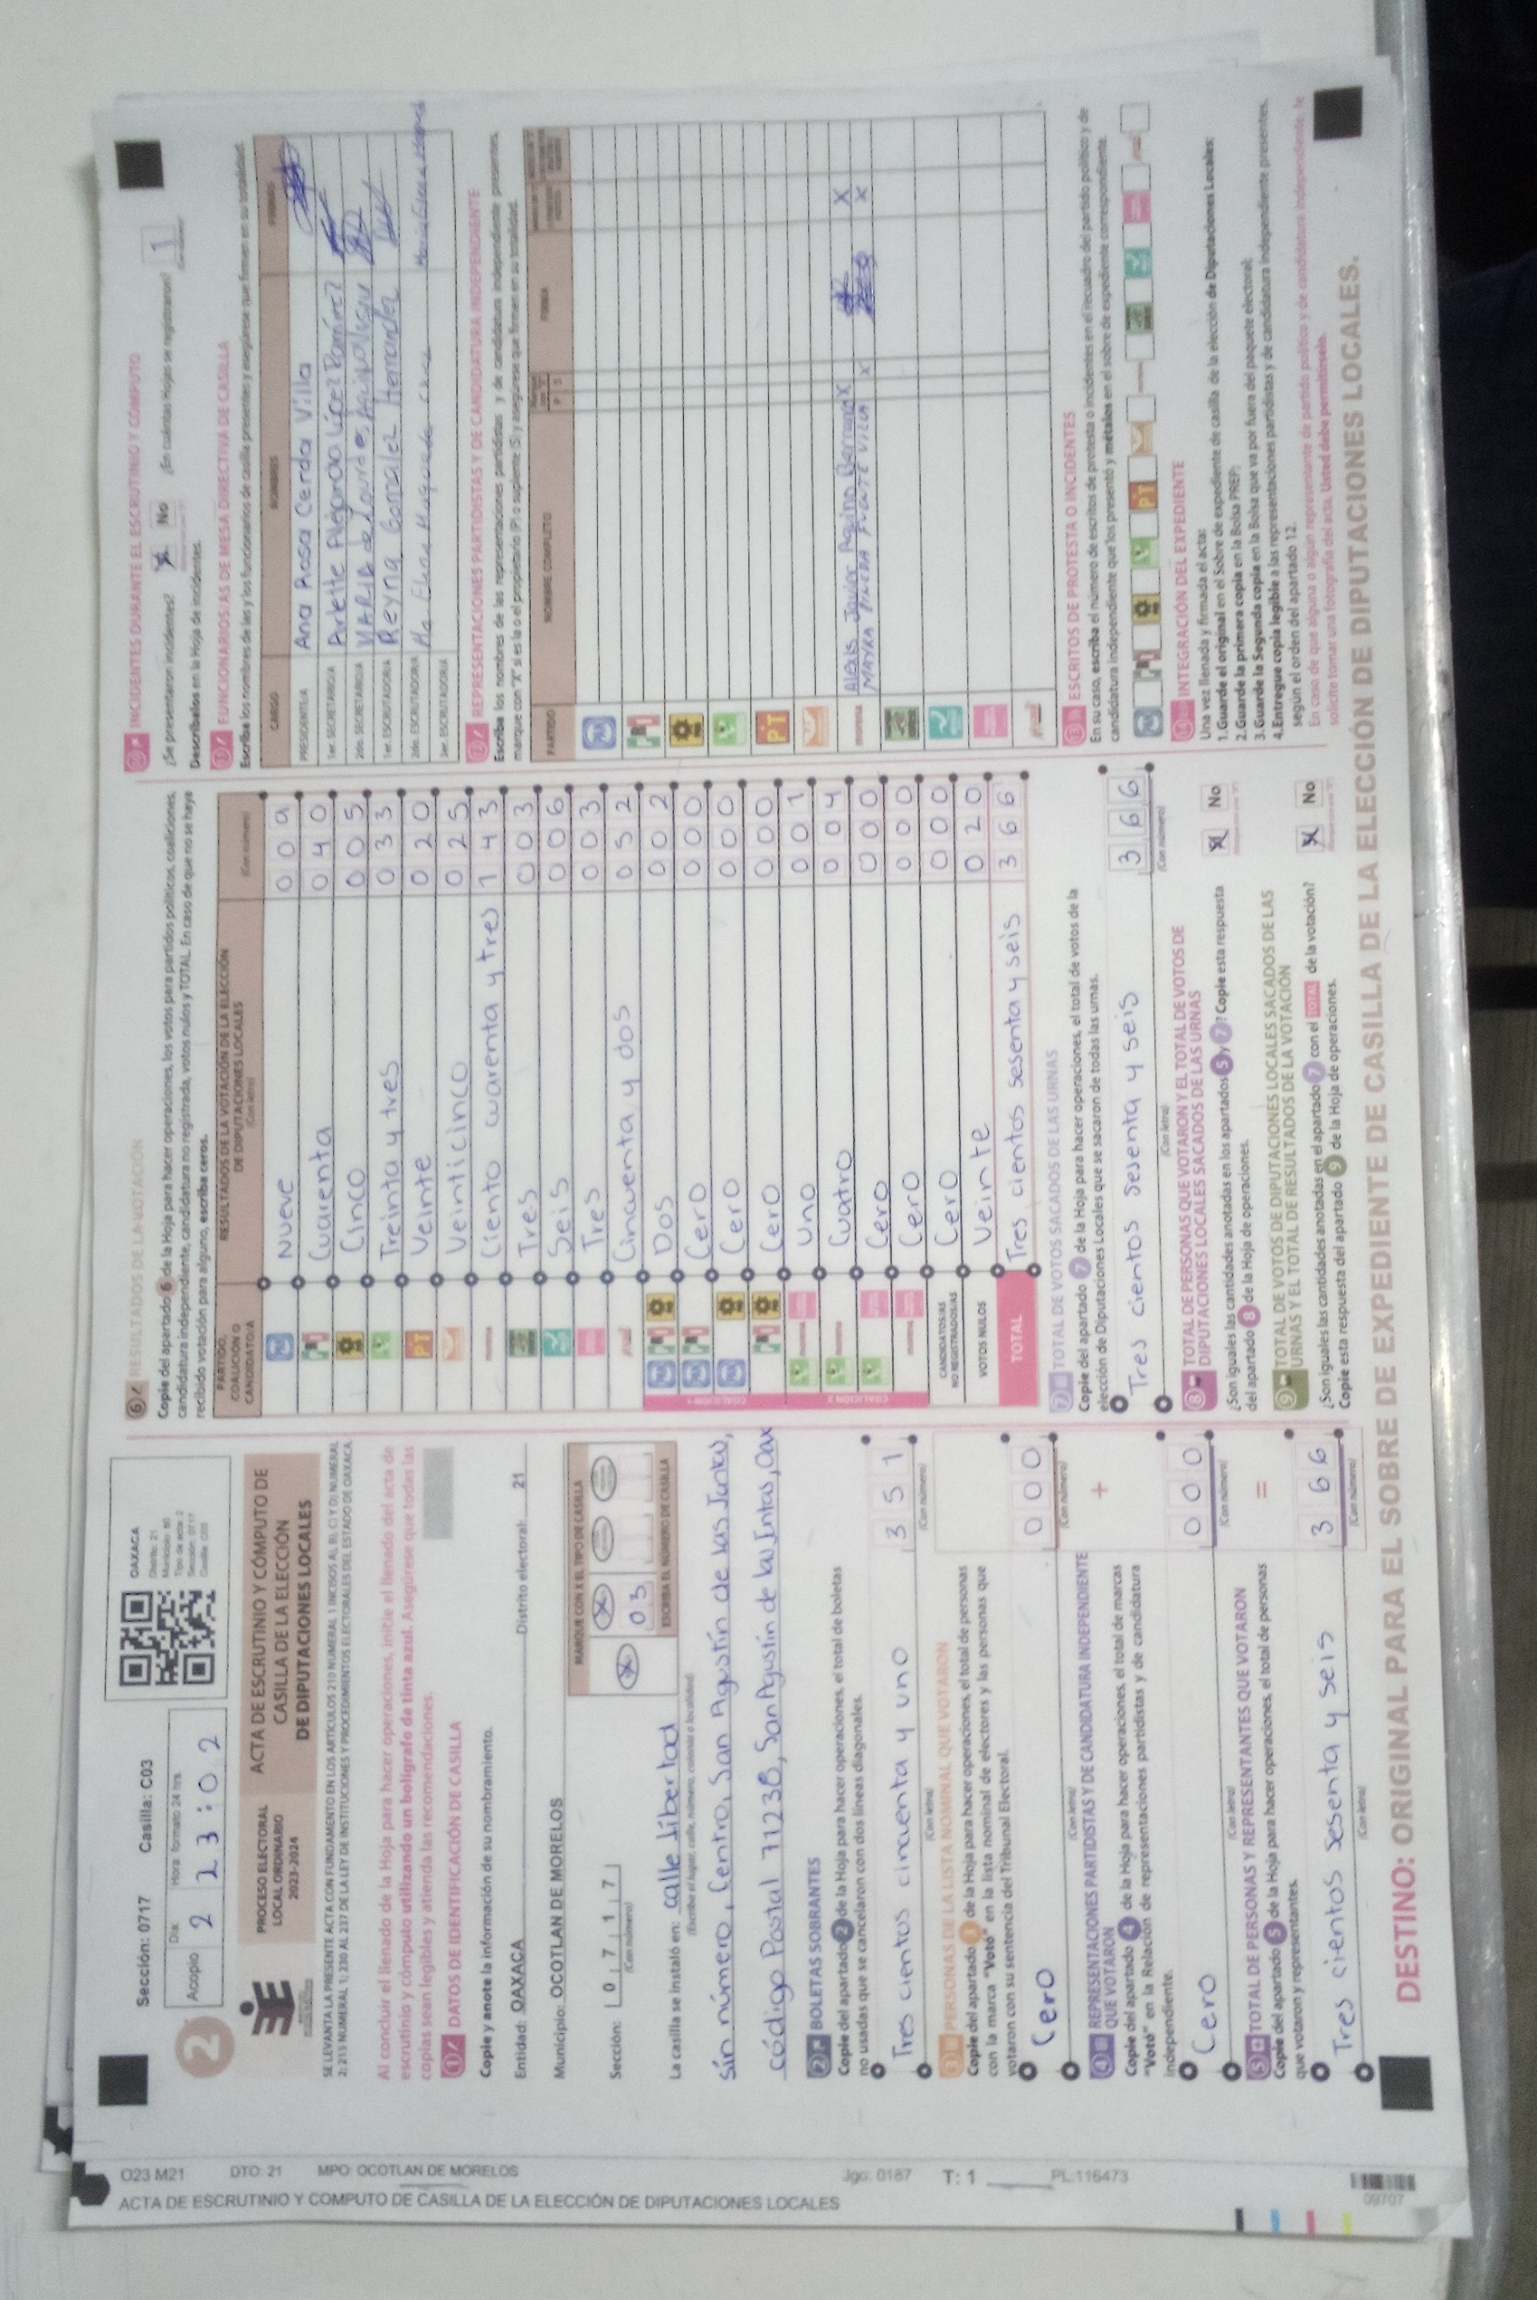 O23 M21 DTO: 21 MPO: OCOTLAN DE MORELOS Jgo: 0187 T: 1 PL:116473
ACTA DE ESCRUTINIO Y COMPUTO DE CASILLA DE LA ELECCIÓN DE DIPUTACIONES LOCALES
09707
Sección: 0717 Casilla: C03
2
Acopio
Día
2
Hora formato 24 hrs.
23:02
OAXACA
Distrito: 21
Tipo de acta: 2
Sección: 0717
Casilla: C03
PROCESO ELECTORAL
LOCAL ORDINARIO
2023-2024
ACTA DE ESCRUTINIO Y CÓMPUTO DE
CASILLA DE LA ELECCIÓN
DE DIPUTACIONES LOCALES
SE LEVANTA LA PRESENTE ACTA CON FUNDAMENTO EN LOS ARTÍCULOS 210 NUMERAL 1 INCISOS A), B), C) Y D); NUMERAL
2; 215 NUMERAL 1; 230 AL 237 DE LA LEY DE INSTITUCIONES Y PROCEDIMIENTOS ELECTORALES DEL ESTADO DE OAXACA.
Al concluir el llenado de la Hoja para hacer operaciones, inicie el llenado del acta de
escrutinio y cómputo utilizando un bolígrafo de tinta azul. Asegúrese que todas las
copias sean legibles y atienda las recomendaciones.
1 DATOS DE IDENTIFICACIÓN DE CASILLA
Copie y anote la información de su nombramiento.
Entidad: OAXACA Distrito electoral: 21
Municipio: OCOTLAN DE MORELOS
Sección: 0 7 1 7
(Con número)
MARQUE CON X EL TIPO DE CASILLA
03
ESCRIBA EL NÚMERO DE CASILLA
La casilla se instaló en: calle libertad
(Escriba el lugar, calle, número, colonia o localidad)
sin número, Centro, San Agustín de las Juntas,
código Postal 71238, San Agustín de las Juntas, Oax
2 BOLETAS SOBRANTES
Copie del apartado 2 de la Hoja para hacer operaciones, el total de boletas
no usadas que se cancelaron con dos líneas diagonales.
Tres cientos cincuenta y uno 351
(Con letra) (Con número)
3 PERSONAS DE LA LISTA NOMINAL QUE VOTARON
Copie del apartado 3 de la Hoja para hacer operaciones, el total de personas
con la marca "Votó" en la lista nominal de electores y las personas que
votaron con su sentencia del Tribunal Electoral.
Cero 000
(Con letra) (Con número)
+
4 REPRESENTACIONES PARTIDISTAS Y DE CANDIDATURA INDEPENDIENTE
QUE VOTARON
Copie del apartado 4 de la Hoja para hacer operaciones, el total de marcas
"Votó" en la Relación de representaciones partidistas y de candidatura
independiente.
Cero 000
(Con letra) (Con número)
=
5 TOTAL DE PERSONAS Y REPRESENTANTES QUE VOTARON
Copie del apartado 5 de la Hoja para hacer operaciones, el total de personas
que votaron y representantes.
Tres cientos sesenta y seis 366
(Con letra) (Con número)
6 RESULTADOS DE LA VOTACIÓN
Copie del apartado 6 de la Hoja para hacer operaciones, los votos para partidos políticos, coaliciones,
candidatura independiente, candidatura no registrada, votos nulos y TOTAL. En caso de que no se haya
recibido votación para alguno, escriba ceros.
PARTIDO,
COALICIÓN O
CANDIDATO/A
RESULTADOS DE LA VOTACIÓN DE LA ELECCIÓN
DE DIPUTACIONES LOCALES
(Con letra) (Con número)
Nueve 009
Cuarenta 040
Cinco 005
Treinta y tres 033
PT Veinte 020
Veinticinco 025
morena Ciento cuarenta y tres 143
Tres 003
Seis 006
Tres 003
Cincuenta y dos 052
Dos 002
Cero 000
Cero 000
Cero 000
Uno 001
Cuatro 004
Cero 000
Cero 000
CANDIDATOS/AS
NO REGISTRADOS/AS Cero 000
VOTOS NULOS Veinte 020
TOTAL Tres cientos sesenta y seis 366
7 TOTAL DE VOTOS SACADOS DE LAS URNAS
Copie del apartado 7 de la Hoja para hacer operaciones, el total de votos de la
elección de Diputaciones Locales que se sacaron de todas las urnas.
Tres cientos sesenta y seis 366
(Con letra) (Con número)
8 TOTAL DE PERSONAS QUE VOTARON Y EL TOTAL DE VOTOS DE
DIPUTACIONES LOCALES SACADOS DE LAS URNAS
¿Son iguales las cantidades anotadas en los apartados 5 y 7? Copie esta respuesta
del apartado 8 de la Hoja de operaciones.
No
9 TOTAL DE VOTOS DE DIPUTACIONES LOCALES SACADOS DE LAS
URNAS Y EL TOTAL DE RESULTADOS DE LA VOTACIÓN
¿Son iguales las cantidades anotadas en el apartado 7 con el TOTAL de la votación?
Copie esta respuesta del apartado 9 de la Hoja de operaciones.
No
INCIDENTES DURANTE EL ESCRUTINIO Y CÓMPUTO
¿Se presentaron incidentes? No ¿En cuántas Hojas se registraron? 1
Descríbalos en la Hoja de incidentes.
FUNCIONARIOS/AS DE MESA DIRECTIVA DE CASILLA
Escriba los nombres de las y los funcionarios de casilla presentes y asegúrese que firmen en su totalidad.
CARGO NOMBRES FIRMAS
PRESIDENTE/A Ana Rosa Cerda Villa
1er. SECRETARIO/A Arlette Alejandra López Ramírez
2do. SECRETARIO/A MARIA de Lourdes
1er. ESCRUTADOR/A Reyna Gonzalez Hernandez
2do. ESCRUTADOR/A Ma Elena
3er. ESCRUTADOR/A
REPRESENTACIONES PARTIDISTAS Y DE CANDIDATURA INDEPENDIENTE
Escriba los nombres de las representaciones partidistas y de candidatura independiente presentes,
marque con "X" si es la o el propietario (P) o suplente (S) y asegúrese que firmen en su totalidad.
PARTIDO NOMBRE COMPLETO P S FIRMA
PT
morena Alexis Javier Aquino X X
MAYRA PINEDA VILLA X X
ESCRITOS DE PROTESTA O INCIDENTES
En su caso, escriba el número de escritos de protesta o incidentes en el recuadro del partido político y de
candidatura independiente que los presentó y métalos en el sobre de expediente correspondiente.
PT
INTEGRACIÓN DEL EXPEDIENTE
Una vez llenada y firmada el acta:
1.Guarde el original en el Sobre de expediente de casilla de la elección de Diputaciones Locales;
2.Guarde la primera copia en la Bolsa PREP;
3.Guarde la Segunda copia en la Bolsa que va por fuera del paquete electoral;
4.Entregue copia legible a las representaciones partidistas y de candidatura independiente presentes,
según el orden del apartado 12.
En caso de que alguna o algún representante de partido político y de candidatura independiente, le
solicite tomar una fotografía del acta. Usted debe permitírselo.
DESTINO: ORIGINAL PARA EL SOBRE DE EXPEDIENTE DE CASILLA DE LA ELECCIÓN DE DIPUTACIONES LOCALES.